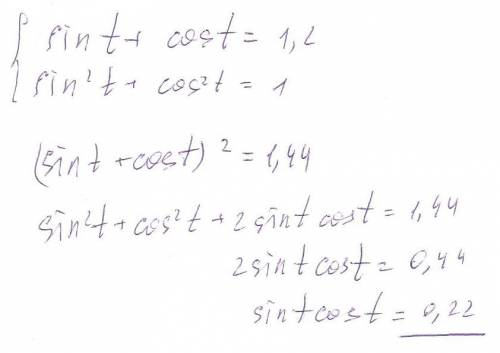 sin t + cos t = 1,2
sin²t + cos²t = 1
(sin t + cos t)² = 1,44
sin²t + cos²t + 2 sin t cos t = 1,44
2 sin t cos t = 0,44
sin t cos t = 0,22